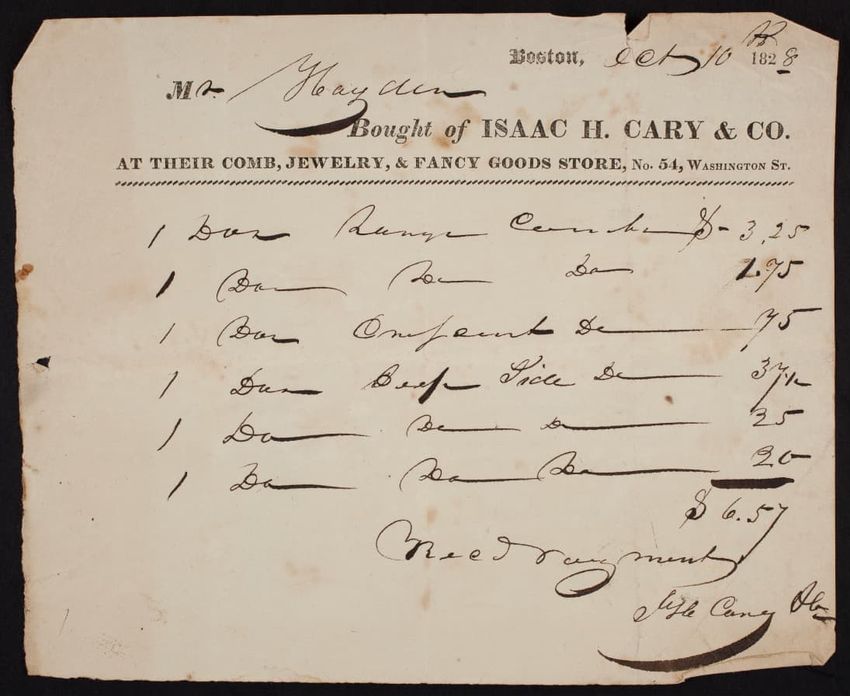 Boston, Oct 10 1828
Mr. Hayden
Bought of ISAAC H. CARY & CO.
AT THEIR COMB, JEWELRY, & FANCY GOODS STORE, No. 54, WASHINGTON ST.
1 Doz Combs $ 3.25
1 Do Do Do 1.75
1 Doz Do 75
1 Doz Side Do 37½
1 Do Do Do 25
1 Do Do Do 20
$ 6.57
Recd Payment
Cary